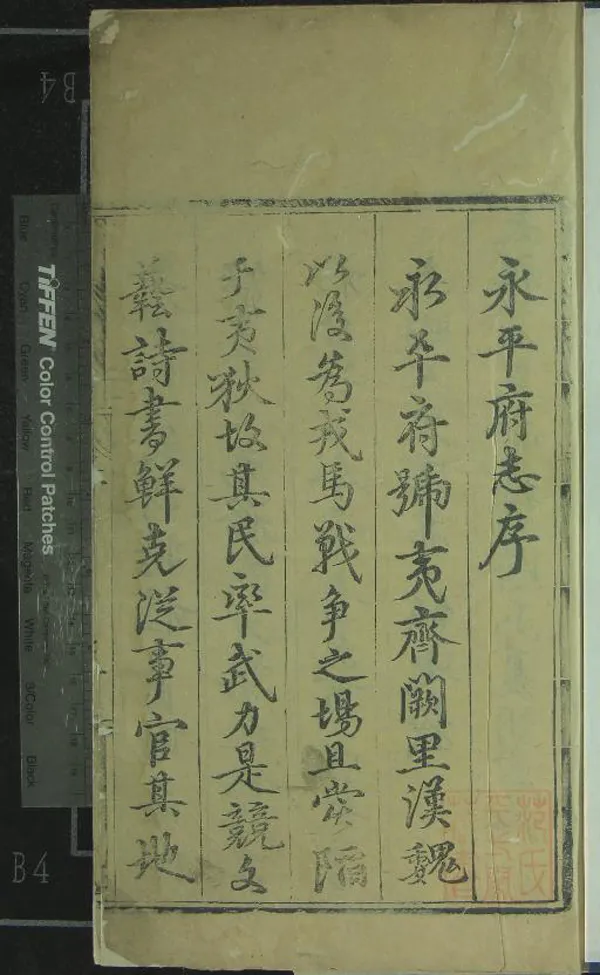 永平府志序
永平府號夷齊闕里漢魏
以後為戎馬戰争之場且嘗陷
于夷狄故其民率武力是競文
藝詩書鮮克從事官其地
B4
B4
TIFFEN Color Control Patches
Blue
Cyan
Green
Yellow
Red
Magenta
White
3/Color
Black